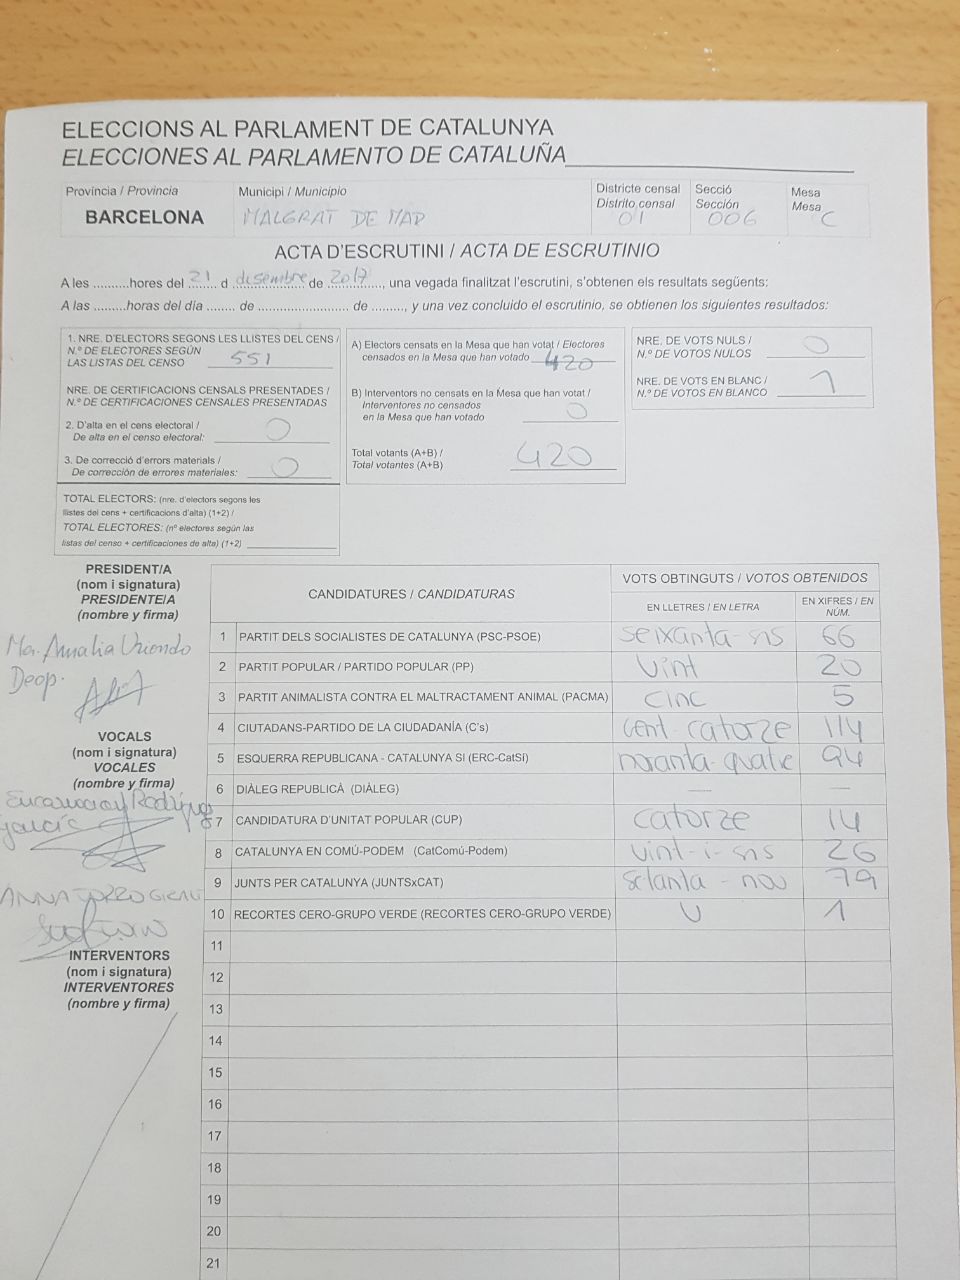 ELECCIONS AL PARLAMENT DE CATALUNYA
ELECCIONES AL PARLAMENTO DE CATALUÑA
Província / Provincia
BARCELONA
Municipi / Municipio
MALGRAT DE MAR
Districte censal
Distrito censal
01
Secció
Sección
006
Mesa
Mesa
C
ACTA D'ESCRUTINI / ACTA DE ESCRUTINIO
A les ..........hores del 21 d disembre de 2017, una vegada finalitzat l'escrutini, s'obtenen els resultats següents:
A las ..........horas del día ........ de ............................ de ........., y una vez concluido el escrutinio, se obtienen los siguientes resultados:
1. NRE. D'ELECTORS SEGONS LES LLISTES DEL CENS /
N.º DE ELECTORES SEGÚN
LAS LISTAS DEL CENSO 551
NRE. DE CERTIFICACIONS CENSALS PRESENTADES /
N.º DE CERTIFICACIONES CENSALES PRESENTADAS
2. D'alta en el cens electoral /
De alta en el censo electoral: 0
3. De correcció d'errors materials /
De corrección de errores materiales: 0
TOTAL ELECTORS: (nre. d'electors segons les
llistes del cens + certificacions d'alta) (1+2) /
TOTAL ELECTORES: (nº electores según las
listas del censo + certificaciones de alta) (1+2)
A) Electors censats en la Mesa que han votat / Electores
censados en la Mesa que han votado 420
B) Interventors no censats en la Mesa que han votat /
Interventores no censados
en la Mesa que han votado 0
Total votants (A+B) /
Total votantes (A+B) 420
NRE. DE VOTS NULS /
N.º DE VOTOS NULOS 0
NRE. DE VOTS EN BLANC /
N.º DE VOTOS EN BLANCO 1
PRESIDENT/A
(nom i signatura)
PRESIDENTE/A
(nombre y firma)
Ma. Amalia
Deop.
VOCALS
(nom i signatura)
VOCALES
(nombre y firma)
Encarnacion Rodríguez
García
ANNA
INTERVENTORS
(nom i signatura)
INTERVENTORES
(nombre y firma)
CANDIDATURES / CANDIDATURAS
VOTS OBTINGUTS / VOTOS OBTENIDOS
EN LLETRES / EN LETRA
EN XIFRES / EN
NÚM.
1 PARTIT DELS SOCIALISTES DE CATALUNYA (PSC-PSOE) seixanta-sis 66
2 PARTIT POPULAR / PARTIDO POPULAR (PP) vint 20
3 PARTIT ANIMALISTA CONTRA EL MALTRACTAMENT ANIMAL (PACMA) cinc 5
4 CIUTADANS-PARTIDO DE LA CIUDADANÍA (C's) cent catorze 114
5 ESQUERRA REPUBLICANA - CATALUNYA SÍ (ERC-CatSí) noranta-quatre 94
6 DIÀLEG REPUBLICÀ (DIÀLEG) — —
7 CANDIDATURA D'UNITAT POPULAR (CUP) catorze 14
8 CATALUNYA EN COMÚ-PODEM (CatComú-Podem) vint-i-sis 26
9 JUNTS PER CATALUNYA (JUNTSxCAT) setanta-nou 79
10 RECORTES CERO-GRUPO VERDE (RECORTES CERO-GRUPO VERDE) U 1
11
12
13
14
15
16
17
18
19
20
21